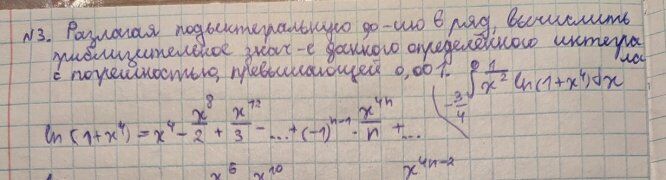 №3. Разлагая подынтегральную ф-цию в ряд, вычислить
приблизительное знач-е данного определённого интеграла
с погрешностью, превышающей 0,001. ∫_{-3/4}^{0} 1/x² ln(1+x⁴)dx
ln(1+x⁴) = x⁴ - x⁸/2 + x¹²/3 - ... + (-1)ⁿ⁻¹ · x⁴ⁿ/n + ...
x⁶ x¹⁰ x⁴ⁿ⁻²